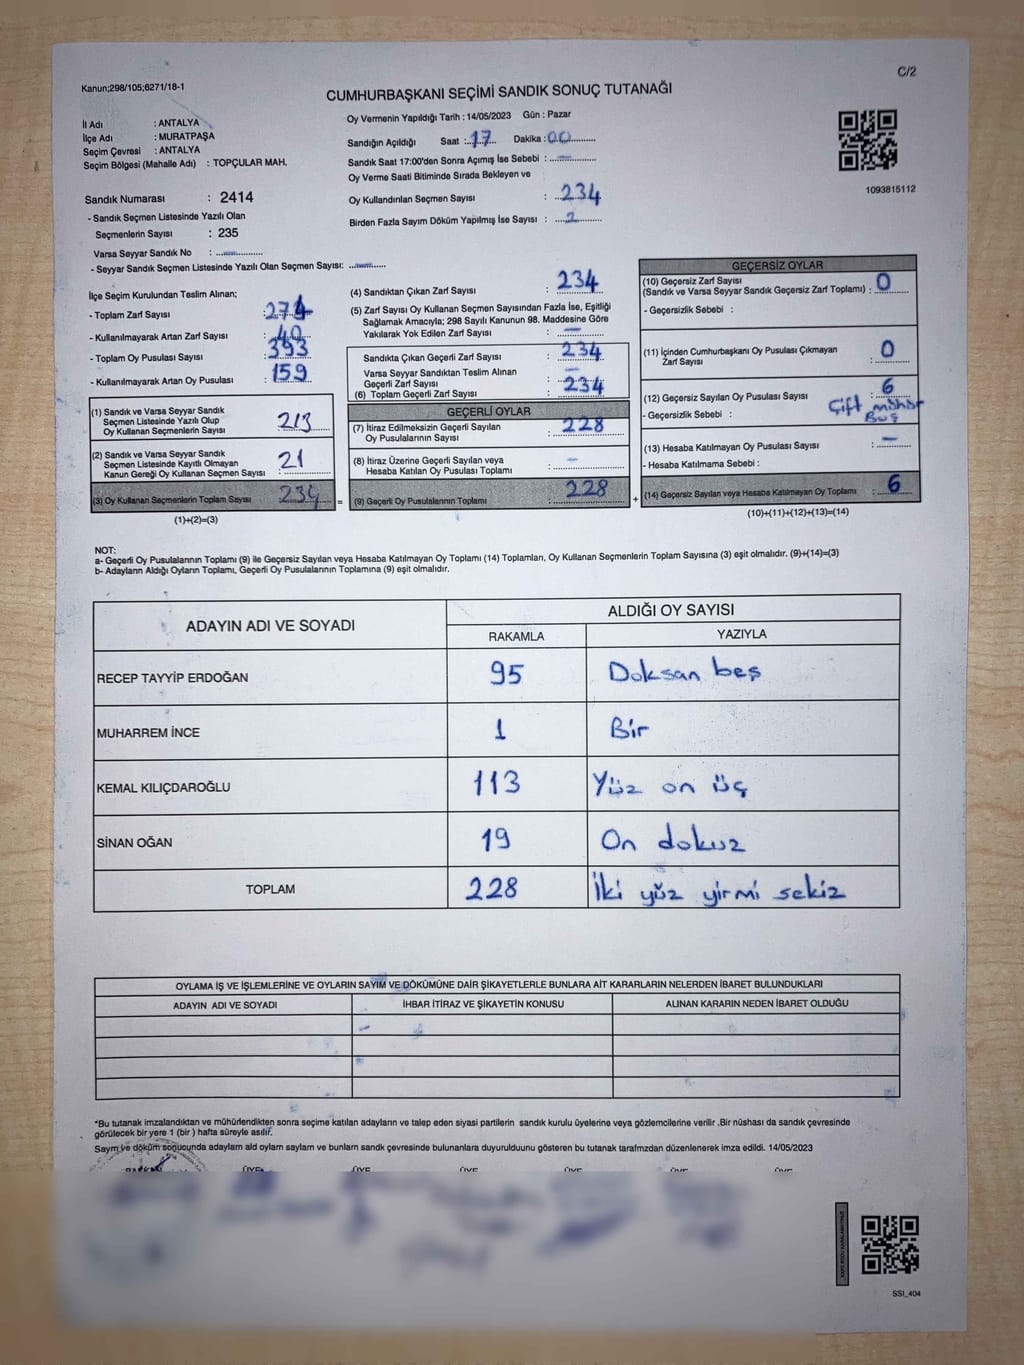 C/2
Kanun;298/105;6271/18-1
CUMHURBAŞKANI SEÇİMİ SANDIK SONUÇ TUTANAĞI
İl Adı : ANTALYA
İlçe Adı : MURATPAŞA
Seçim Çevresi : ANTALYA
Seçim Bölgesi (Mahalle Adı) : TOPÇULAR MAH.
Sandık Numarası : 2414
- Sandık Seçmen Listesinde Yazılı Olan
Seçmenlerin Sayısı : 235
Varsa Seyyar Sandık No :
- Seyyar Sandık Seçmen Listesinde Yazılı Olan Seçmen Sayısı:
Oy Vermenin Yapıldığı Tarih : 14/05/2023 Gün : Pazar
Sandığın Açıldığı Saat : 17 Dakika : 00
Sandık Saat 17:00'den Sonra Açımış İse Sebebi : —
Oy Verme Saati Bitiminde Sırada Bekleyen ve
Oy Kullandırılan Seçmen Sayısı : 234
Birden Fazla Sayım Döküm Yapılmış İse Sayısı : 2
1093815112
İlçe Seçim Kurulundan Teslim Alınan;
- Toplam Zarf Sayısı : 274
- Kullanılmayarak Artan Zarf Sayısı : 40
- Toplam Oy Pusulası Sayısı : 393
- Kullanılmayarak Artan Oy Pusulası : 159
(1) Sandık ve Varsa Seyyar Sandık
Seçmen Listesinde Yazılı Olup
Oy Kullanan Seçmenlerin Sayısı : 213
(2) Sandık ve Varsa Seyyar Sandık
Seçmen Listesinde Kayıtlı Olmayan
Kanun Gereği Oy Kullanan Seçmen Sayısı : 21
(3) Oy Kullanan Seçmenlerin Toplam Sayısı : 234 =
(1)+(2)=(3)
(4) Sandıktan Çıkan Zarf Sayısı : 234
(5) Zarf Sayısı Oy Kullanan Seçmen Sayısından Fazla İse, Eşitliği
Sağlamak Amacıyla; 298 Sayılı Kanunun 98. Maddesine Göre
Yakılarak Yok Edilen Zarf Sayısı : —
Sandıkta Çıkan Geçerli Zarf Sayısı : 234
Varsa Seyyar Sandıktan Teslim Alınan
Geçerli Zarf Sayısı : —
(6) Toplam Geçerli Zarf Sayısı : 234
GEÇERLİ OYLAR
(7) İtiraz Edilmeksizin Geçerli Sayılan
Oy Pusulalarının Sayısı : 228
(8) İtiraz Üzerine Geçerli Sayılan veya
Hesaba Katılan Oy Pusulası Toplamı : —
(9) Geçerli Oy Pusulalarının Toplamı : 228 +
GEÇERSİZ OYLAR
(10) Geçersiz Zarf Sayısı
(Sandık ve Varsa Seyyar Sandık Geçersiz Zarf Toplamı) : 0
- Geçersizlik Sebebi :
(11) İçinden Cumhurbaşkanı Oy Pusulası Çıkmayan
Zarf Sayısı : 0
(12) Geçersiz Sayılan Oy Pusulası Sayısı : 6
- Geçersizlik Sebebi : Çift mühür
Boş
(13) Hesaba Katılmayan Oy Pusulası Sayısı : —
- Hesaba Katılmama Sebebi :
(14) Geçersiz Sayılan veya Hesaba Katılmayan Oy Toplamı : 6
(10)+(11)+(12)+(13)=(14)
NOT:
a- Geçerli Oy Pusulalarının Toplamı (9) ile Geçersiz Sayılan veya Hesaba Katılmayan Oy Toplamı (14) Toplamları, Oy Kullanan Seçmenlerin Toplam Sayısına (3) eşit olmalıdır. (9)+(14)=(3)
b- Adayların Aldığı Oyların Toplamı, Geçerli Oy Pusulalarının Toplamına (9) eşit olmalıdır.
ADAYIN ADI VE SOYADI ALDIĞI OY SAYISI
RAKAMLA YAZIYLA
RECEP TAYYİP ERDOĞAN 95 Doksan beş
MUHARREM İNCE 1 Bir
KEMAL KILIÇDAROĞLU 113 Yüz on üç
SİNAN OĞAN 19 On dokuz
TOPLAM 228 İki yüz yirmi sekiz
OYLAMA İŞ VE İŞLEMLERİNE VE OYLARIN SAYIM VE DÖKÜMÜNE DAİR ŞİKAYETLERLE BUNLARA AİT KARARLARIN NELERDEN İBARET BULUNDUKLARI
ADAYIN ADI VE SOYADI İHBAR İTİRAZ VE ŞİKAYETİN KONUSU ALINAN KARARIN NEDEN İBARET OLDUĞU
*Bu tutanak imzalandıktan ve mühürlendikten sonra seçime katılan adayların ve talep eden siyasi partilerin sandık kurulu üyelerine veya gözlemcilerine verilir .Bir nüshası da sandık çevresinde
görülecek bir yere 1 (bir ) hafta süreyle asılır.
Sayım ve döküm sonucunda adaylam ald oylam saylam ve bunlam sandk çevresinde bulunanlara duyurulduunu gösteren bu tutanak tarafmzdan düzenlenerek imza edildi. 14/05/2023
ÜYE ÜYE ÜYE ÜYE ÜYE ÜYE
SSI_404